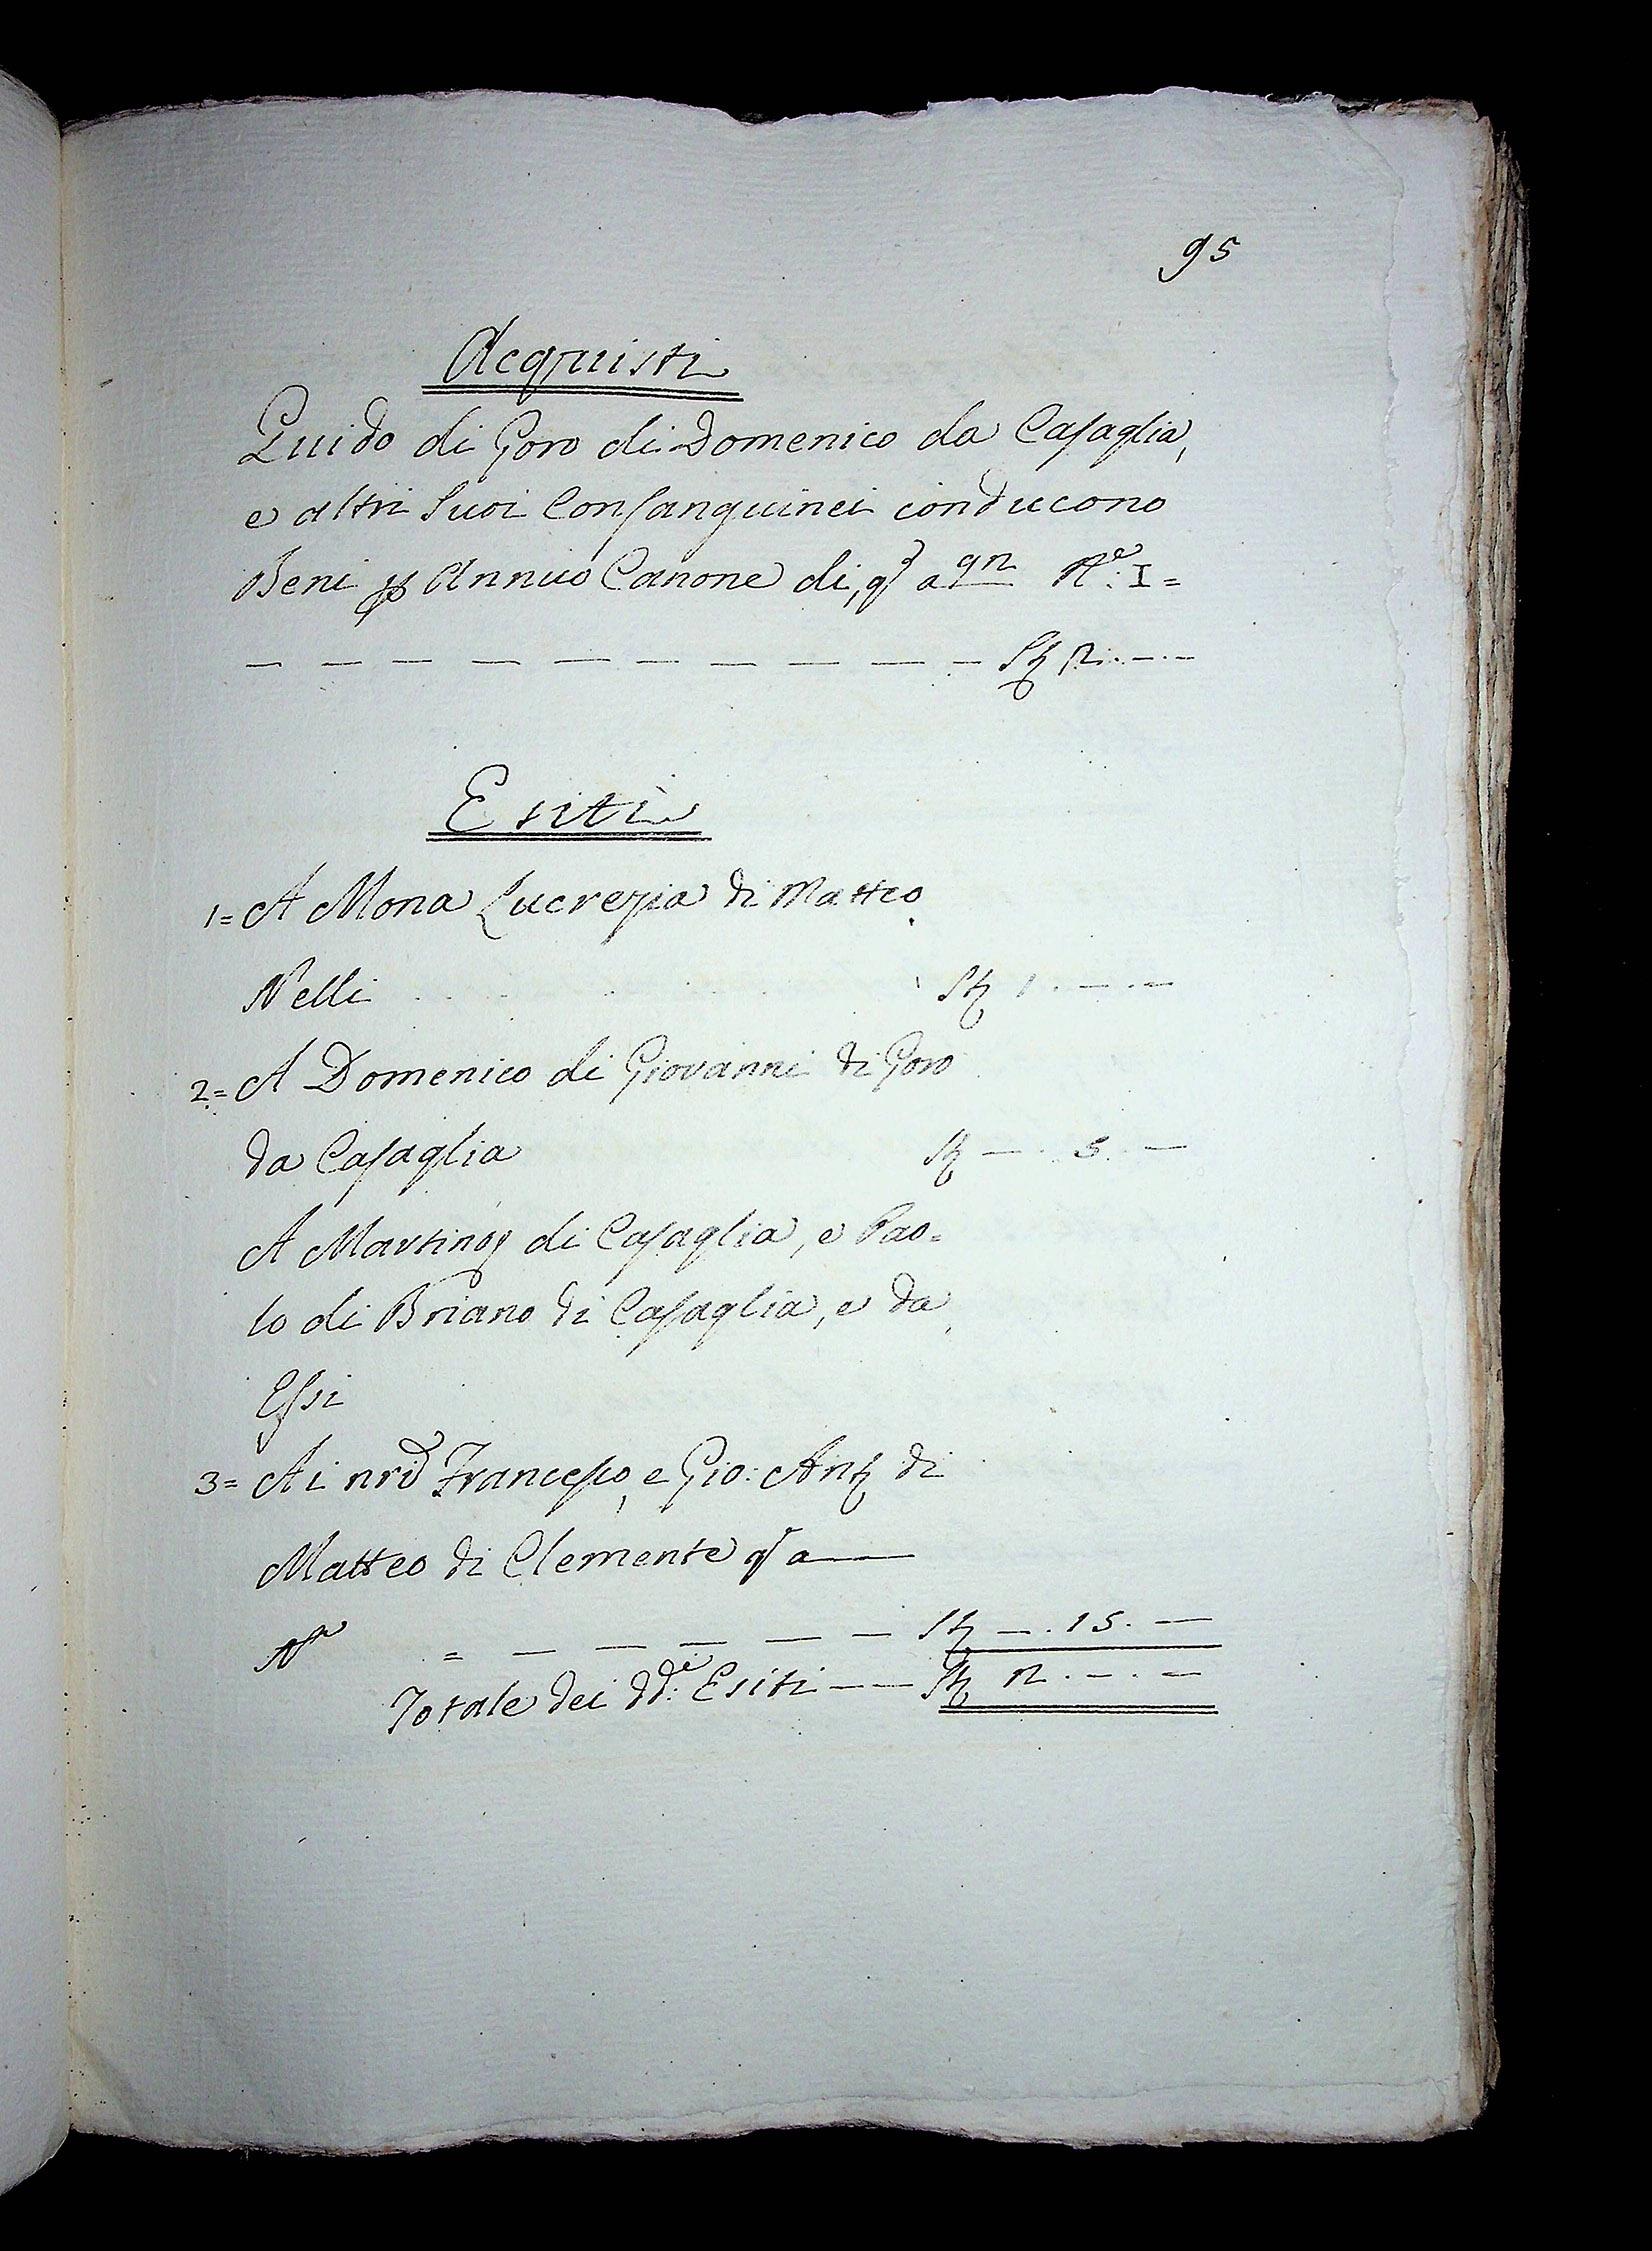 95
Acquisti
Guido di Goro di Domenico da Casaglia,
e altri Suoi Consanguinei conducono
Beni p Annuo Canone di, qto a qn No: I =
— — — — — — — — — — St 2. — . —
Esiti
1= A Mona Lucrezia di Matteo
Nelli St 1 . — . —
2= A Domenico di Giovanni di Goro
da Casaglia St — . 5. —
A Martino di Casaglia, e Pao=
lo di Briano di Casaglia, e da
Essi
3= Ai nri Francesco, e Gio: Ant di
Matteo di Clemente qto a —
No = — — — — — St — . 15. —
Totale dei dd:i Esiti — — St 2 . — . —